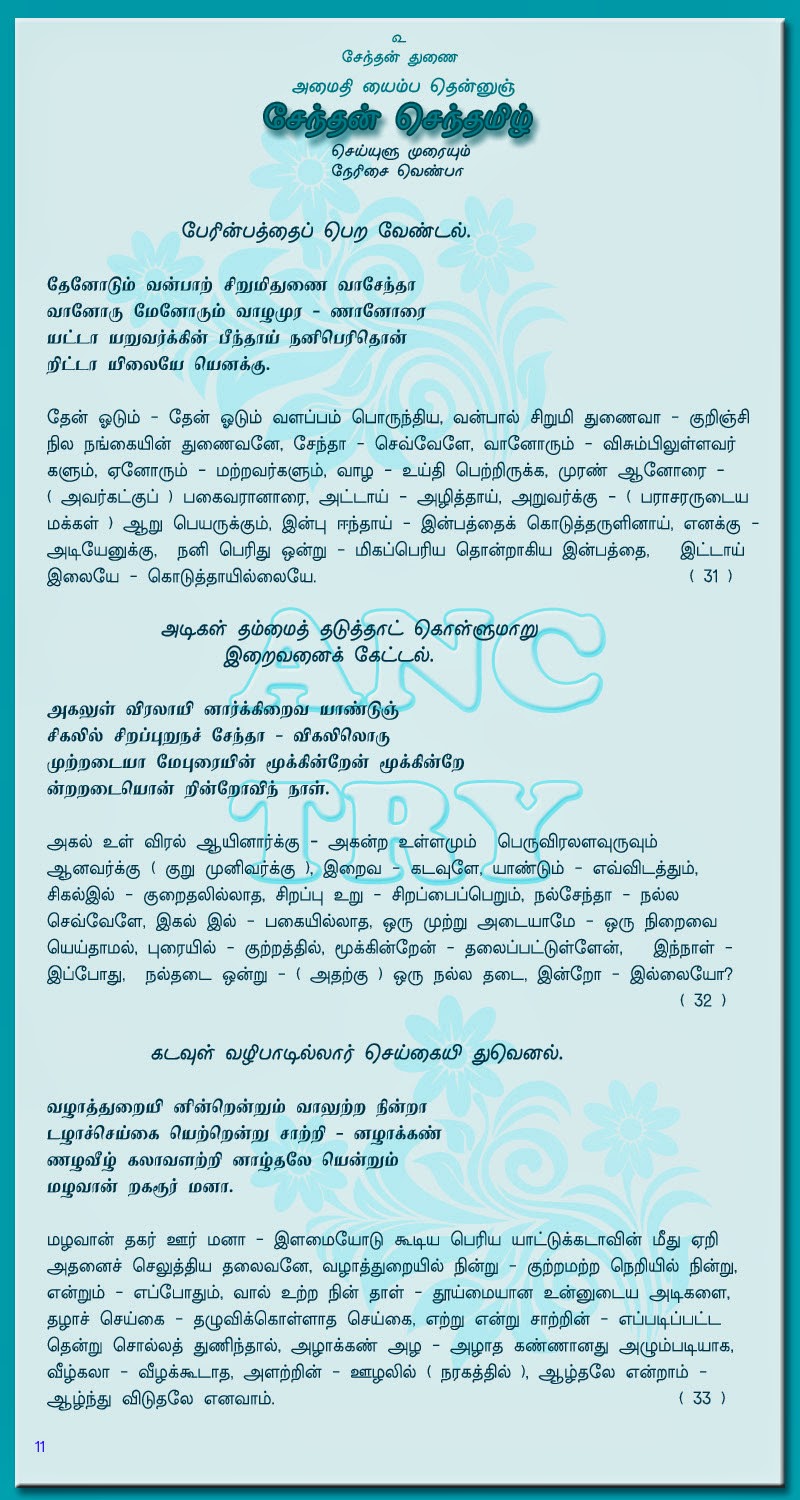 ௨
சேந்தன் துணை
அமைதி யைம்ப தென்னுஞ்
சேந்தன் செந்தமிழ்
செய்யுளு முரையும்
நேரிசை வெண்பா
பேரின்பத்தைப் பெற வேண்டல்.
தேனோடும் வன்பாற் சிறுமிதுணை வாசேந்தா
வானோரு மேனோரும் வாழமுர – ணானோரை
யட்டா யறுவர்க்கின் பீந்தாய் நனிபெரிதொன்
றிட்டா யிலையே யெனக்கு.
தேன் ஓடும் – தேன் ஓடும் வளப்பம் பொருந்திய, வன்பால் சிறுமி துணைவா – குறிஞ்சி
நில நங்கையின் துணைவனே, சேந்தா – செவ்வேளே, வானோரும் – விசும்பிலுள்ளவர்
களும், ஏனோரும் – மற்றவர்களும், வாழ – உய்தி பெற்றிருக்க, முரண் ஆனோரை –
( அவர்கட்குப் ) பகைவரானாரை, அட்டாய் – அழித்தாய், அறுவர்க்கு – ( பராசரருடைய
மக்கள் ) ஆறு பெயருக்கும், இன்பு ஈந்தாய் – இன்பத்தைக் கொடுத்தருளினாய், எனக்கு –
அடியேனுக்கு, நனி பெரிது ஒன்று – மிகப்பெரிய தொன்றாகிய இன்பத்தை, இட்டாய்
இலையே – கொடுத்தாயில்லையே. ( 31 )
அடிகள் தம்மைத் தடுத்தாட் கொள்ளுமாறு
இறைவனைக் கேட்டல்.
அகலுள் விரலாயி னார்க்கிறைவ யாண்டுஞ்
சிகலில் சிறப்புறுநச் சேந்தா – விகலிலொரு
முற்றடையா மேபுரையின் மூக்கின்றேன் மூக்கின்றே
ன்றறடையொன் றின்றோவிந் நாள்.
அகல் உள் விரல் ஆயினார்க்கு – அகன்ற உள்ளமும் பெருவிரலளவுருவும்
ஆனவர்க்கு ( குறு முனிவர்க்கு ), இறைவ – கடவுளே, யாண்டும் – எவ்விடத்தும்,
சிகல்இல் – குறைதலில்லாத, சிறப்பு உறு – சிறப்பைப்பெறும், நல்சேந்தா – நல்ல
செவ்வேளே, இகல் இல் – பகையில்லாத, ஒரு முற்று அடையாமே – ஒரு நிறைவை
யெய்தாமல், புரையில் – குற்றத்தில், மூக்கின்றேன் – தலைப்பட்டுள்ளேன், இந்நாள் –
இப்போது, நல்தடை ஒன்று – ( அதற்கு ) ஒரு நல்ல தடை, இன்றோ – இல்லையோ?
( 32 )
கடவுள் வழிபாடில்லார் செய்கையி துவெனல்.
வழாத்துறையி னின்றென்றும் வாலுற்ற நின்றா
டழாச்செய்கை யெற்றென்று சாற்றி – னழாக்கண்
ணழவீழ் கலாவளற்றி னாழ்தலே யென்றும்
மழவான் றகரூர் மனா.
மழவான் தகர் ஊர் மனா – இளமையோடு கூடிய பெரிய யாட்டுக்கடாவின் மீது ஏறி
அதனைச் செலுத்திய தலைவனே, வழாத்துறையில் நின்று – குற்றமற்ற நெறியில் நின்று,
என்றும் – எப்போதும், வால் உற்ற நின் தாள் – தூய்மையான உன்னுடைய அடிகளை,
தழாச் செய்கை – தழுவிக்கொள்ளாத செய்கை, எற்று என்று சாற்றின் – எப்படிப்பட்ட
தென்று சொல்லத் துணிந்தால், அழாக்கண் அழ – அழாத கண்ணானது அழும்படியாக,
வீழ்கலா – வீழக்கூடாத, அளற்றின் – ஊழலில் ( நரகத்தில் ), ஆழ்தலே என்றாம் –
ஆழ்ந்து விடுதலே எனவாம். ( 33 )
ANC
TRY
11